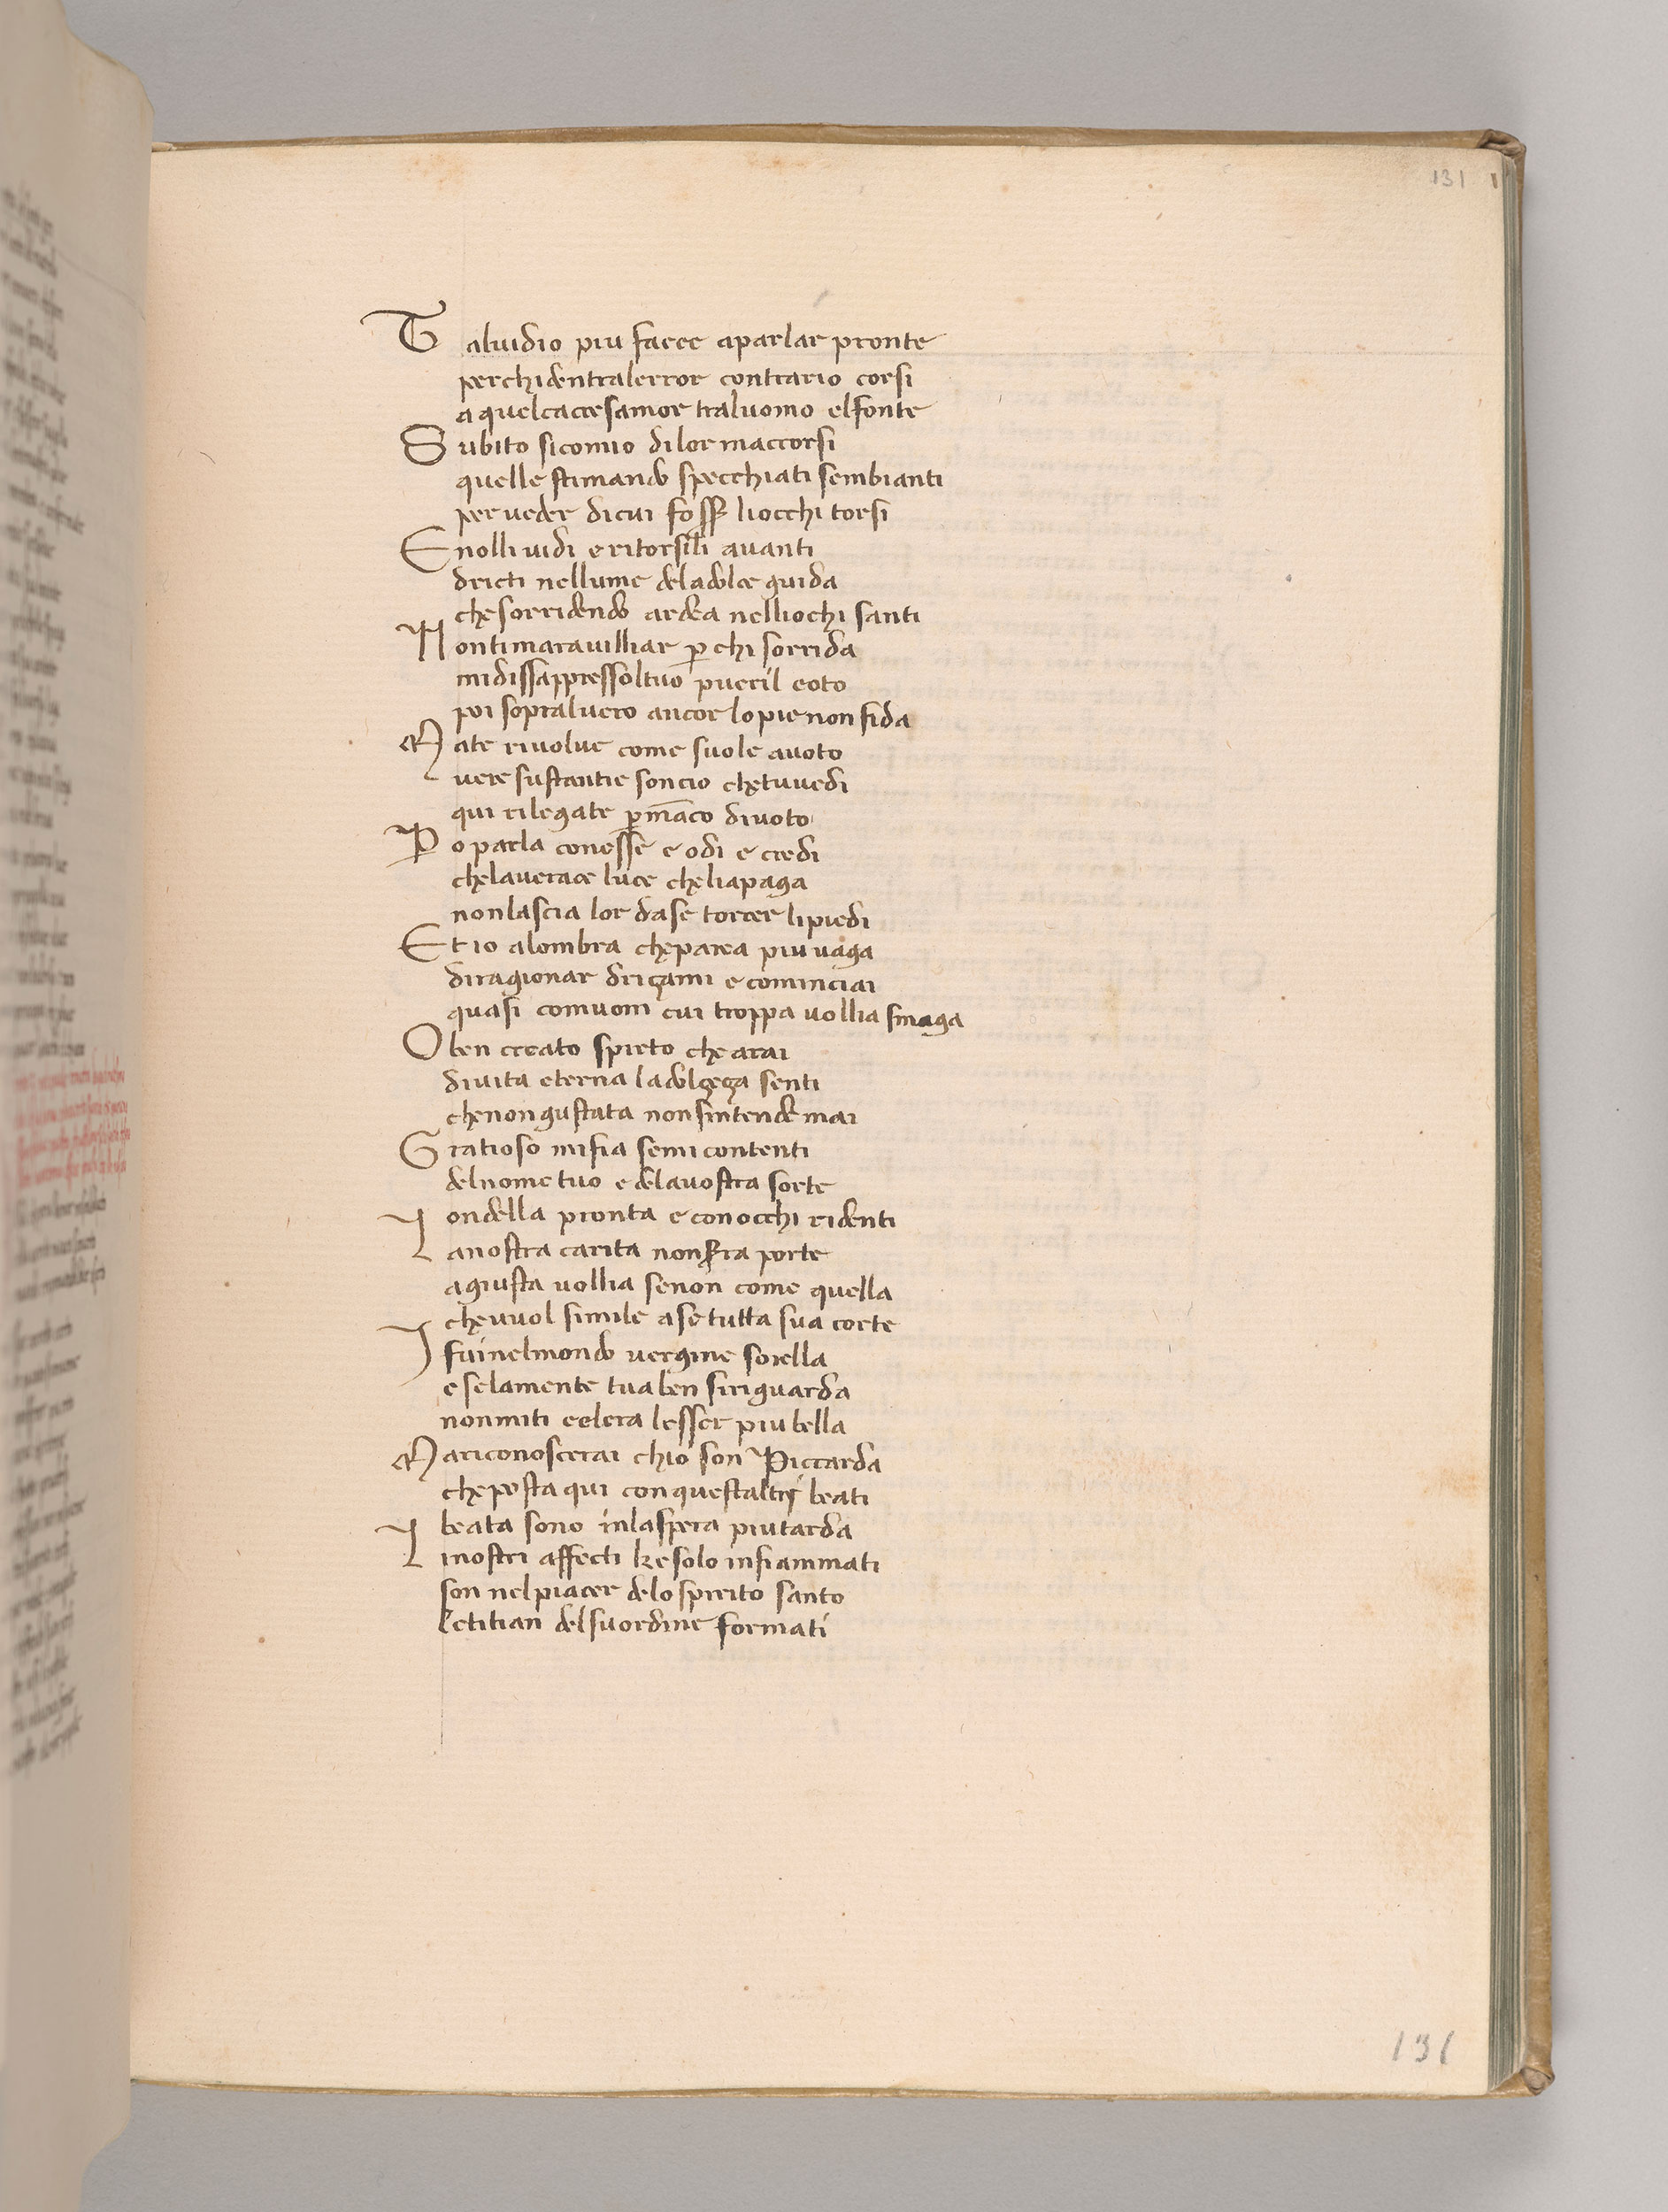 131
Taluidio piu facce aparlar pronte
perchidentralerror contrario corsi
aquelcaccesamor traluomo elfonte
Subito sicomio dilor maccorsi
quelle stimando specchiati sembianti
per ueder dicui fosser liocchi torsi
Enolli uidi e ritorsili auanti
dricti nellume deladolce guida
che sorridendo ardea nelliochi santi
Nontimarauilliar p chi sorrida
midissappressoltuo pueril coto
poi sopraluero ancor lo pie non fida
Mate riuolue come suole auoto
uere sustantie soncio chetuuedi
qui rilegate p māco diuoto
Po parla conesse e odi e credi
chelauerace luce cheliapaga
nonlascia lor dase torcer lipiedi
Et io alombra cheparea piu uaga
diragionar driçami e cominciai
quasi comuom cui troppa uollia smaga
O ben creato spirto che arai
diuita eterna ladolçeça senti
chenongustata nonsintende mai
Gratioso mifia semi contenti
delnome tuo e delauostra sorte
ondella pronta e conocchi ridenti
Lanostra carita nonserra porte
agiusta uollia senon come quella
che uuol simile ase tutta sua corte
I fuinelmondo uergine sorella
e selamente tua ben siriguarda
nonmiti celera lesser piu bella
Mariconoscerai chio son Piccarda
cheposta qui conquestaltri beati
beata sono inlaspera piutarda
Inostri affecti ke solo infiammati
son nelpiacer delo spirito santo
letitian delsuordine formati
131